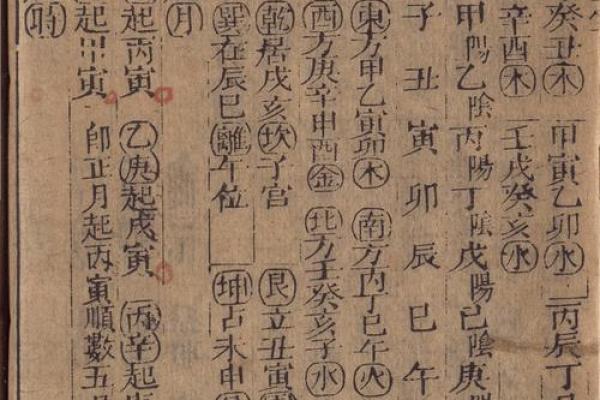 癸丑木 甲寅乙卯水 丙辰丁
辛酉木 壬戌癸亥水
甲陽乙陰丙陽丁陰戊陽己陰庚
子丑寅卯辰巳午
東方甲乙寅卯木 南方丙丁巳午火
西方庚辛申酉金 北方壬癸亥子水
乾居戌亥坎子宮 艮立丑寅
巽在辰巳離午位 坤占未申
月
起丙寅 乙庚起戊寅 丙辛起
起甲寅 即正月起丙寅順數五
時